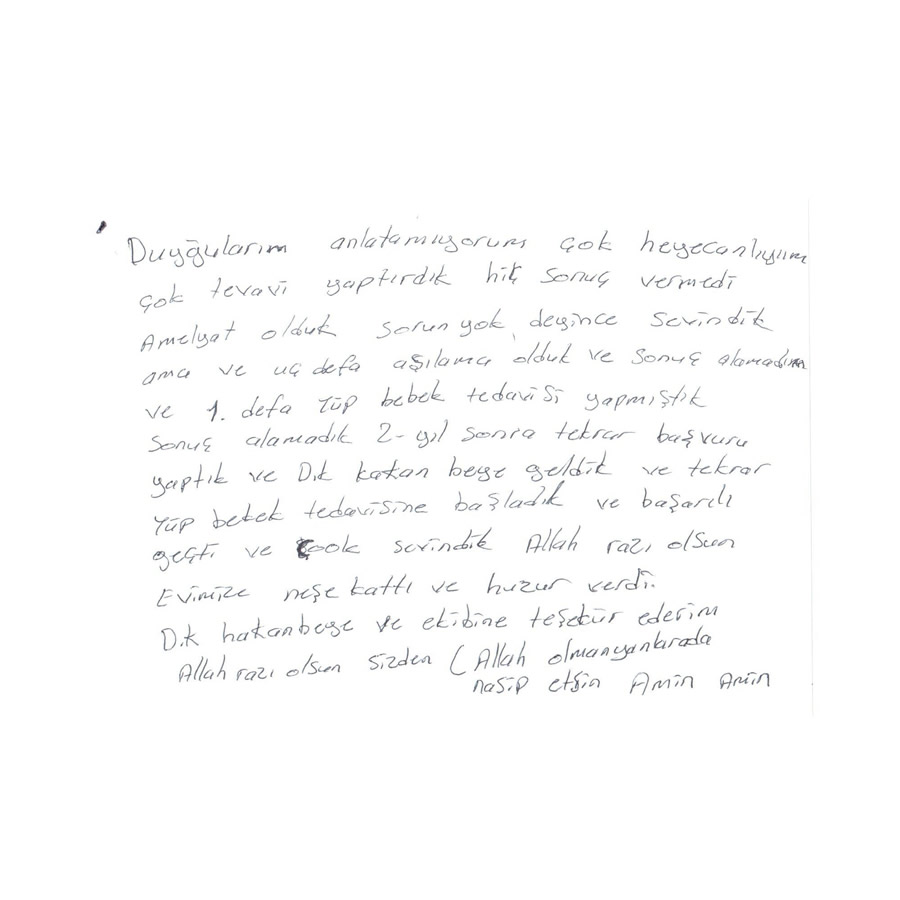 Duyğularım anlatamıyorum çok heyecanlıyım
çok tevavi yaptırdık hiç sonuç vermedi
Amelyat olduk sorun yok deyince sevindik
ama ve uç defa aşılama olduk ve sonuç alamadım
ve 1. defa Tüp bebek tedavisi yapmıştık
Sonuç alamadık 2-yıl sonra tekrar başvuru
yaptık ve D.k kakan beye geldik ve tekrar
Tüp bebek tedavisine başladık ve başarılı
geçti ve çook sevindik Allah razı olsun
Evimize neşe kattı ve huzur verdi.
D.k hakanbeye ve ekibine teşekür ederim
Allah razı olsun sizden (Allah olmanyanlarada
nasip etsin Amin Amin